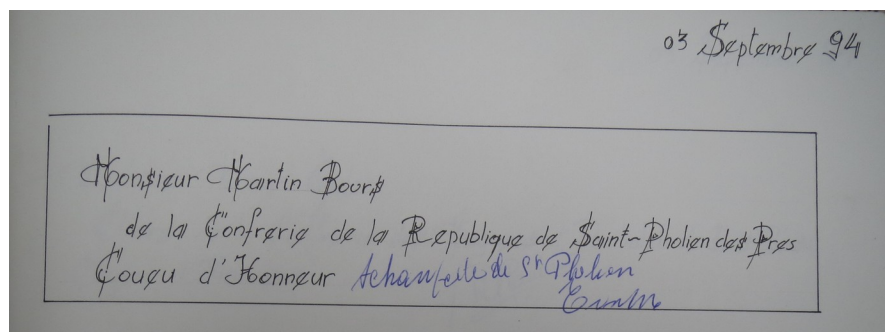 03 Septembre 94
Monsieur Martin Bours
de la Confrerie de la Republique de Saint-Pholien des Pres
Coueu d'Honneur de St Pholien